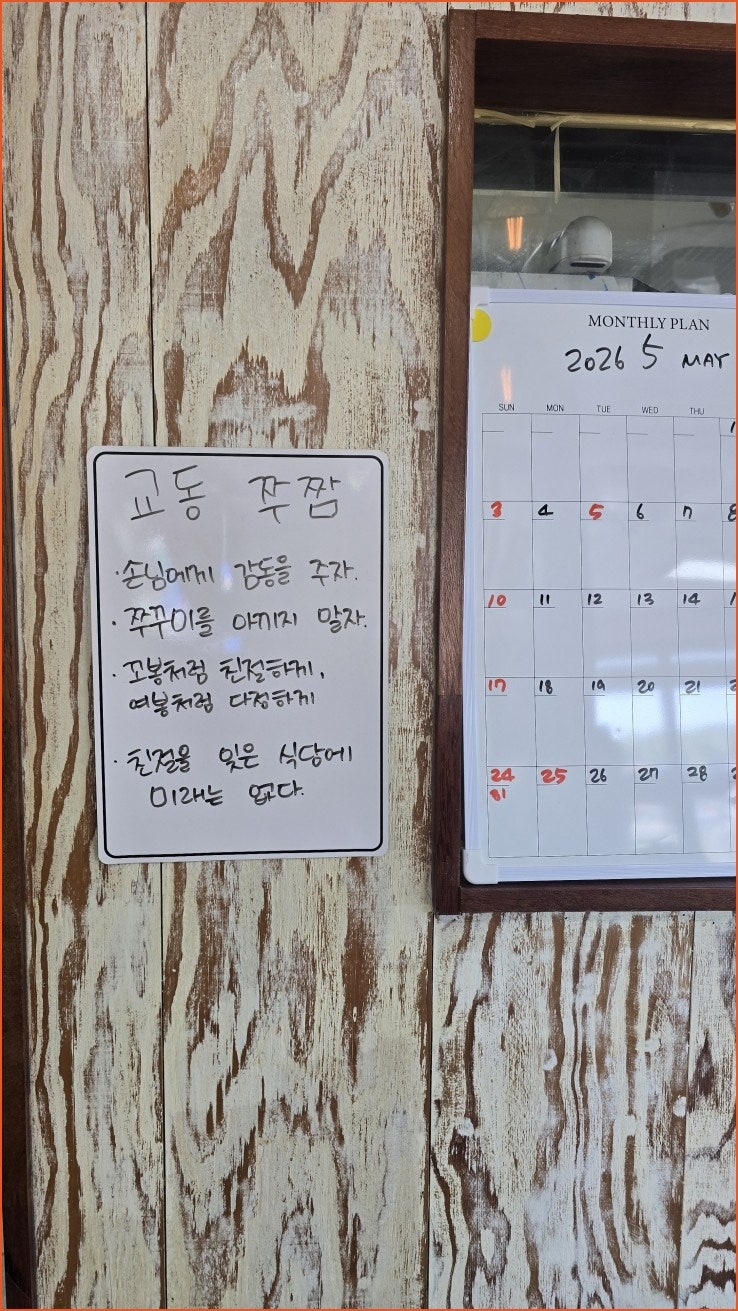 교동 쭈짬
· 손님에게 감동을 주자.
· 쭈꾸미를 아끼지 말자.
· 꼬봉처럼 친절하게,
여봉처럼 다정하게
· 친절을 잊은 식당에
미래는 없다.
MONTHLY PLAN
2026 5 MAY
SUN MON TUE WED THU
3 4 5 6 7 8
10 11 12 13 14
17 18 19 20 21
24 25 26 27 28
31